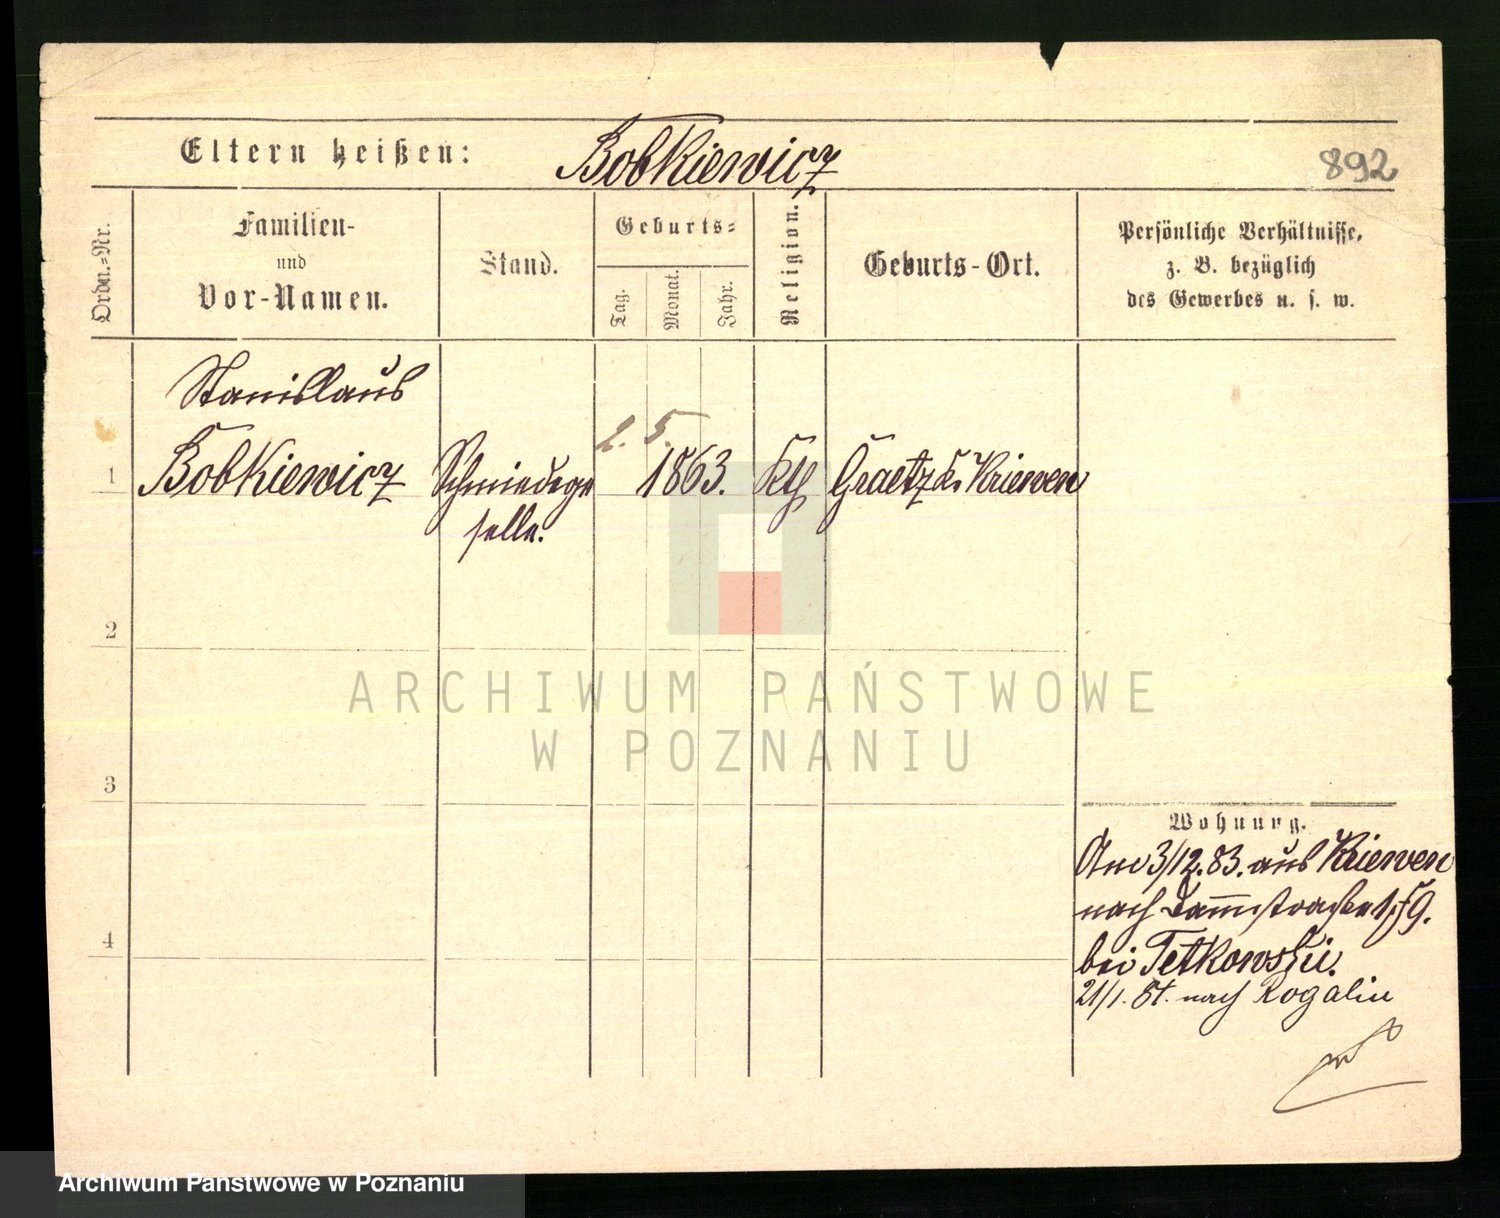 Eltern heißen: Bobkiewicz
892
Ordn.=Nr.
Familien-
und
Vor-Namen.
Stand.
Geburts=
Tag.
Monat.
Jahr.
Religion.
Geburts-Ort.
Persönliche Verhältnisse,
z. B. bezüglich
des Gewerbes u. s. w.
Stanislaus
1 Bobkiewicz Schmiedege 2. 5. 1863. Kth Graetz Kr Kriewen
selle.
2
ARCHIWUM PAŃSTWOWE
W POZNANIU
3
Wohnung.
Am 3/12.83. aus Kriewen
nach
4
bei Tetkowski.
21/1. 84. nach Rogalin
Archiwum Państwowe w Poznaniu